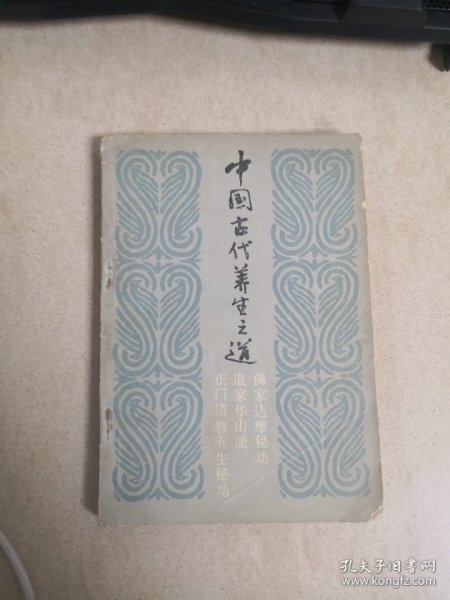 中国古代养生之道
佛家达摩秘功
道家华山派
正门清教养生秘功
孔夫子旧书网
www.kongfz.com